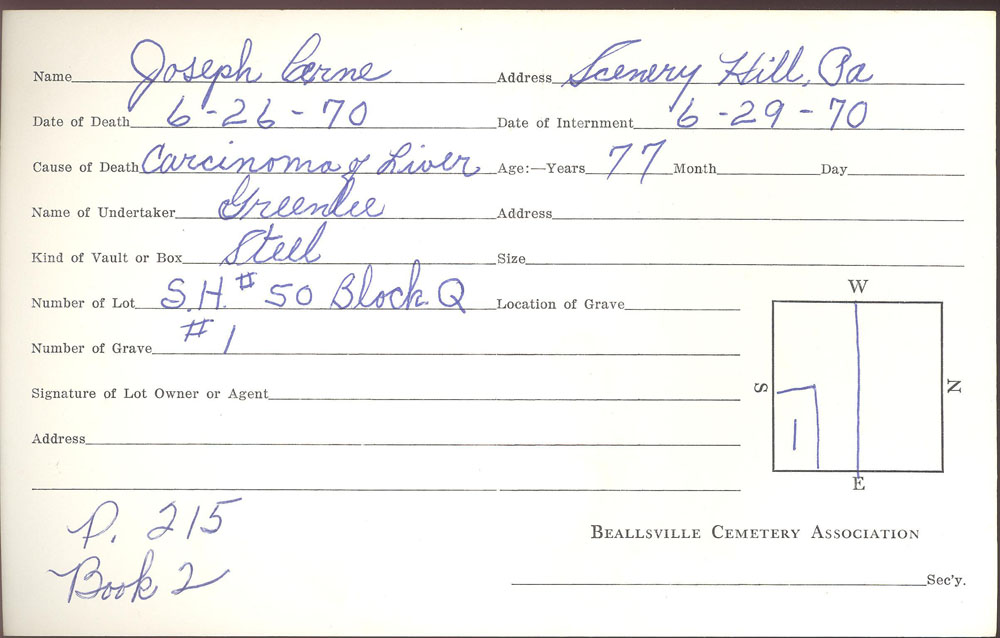 Name Joseph Carne Address Scenery Hill, Pa
Date of Death 6-26-70 Date of Internment 6-29-70
Cause of Death Carcinoma of Liver Age:—Years 77 Month Day
Name of Undertaker Greenlee Address
Kind of Vault or Box Steel Size
Number of Lot S.H. # 50 Block Q Location of Grave
Number of Grave # 1
Signature of Lot Owner or Agent
Address
W
S
N
1
E
P. 215
Book 2
Beallsville Cemetery Association
Sec'y.